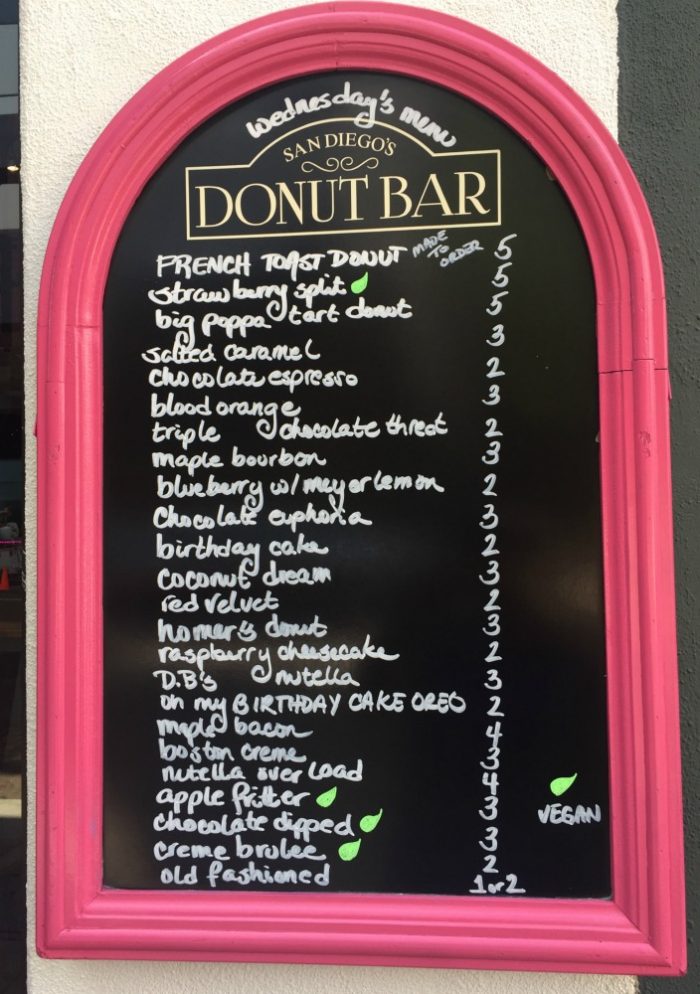 wednesday's menu
SAN DIEGO'S
DONUT BAR
FRENCH TOAST DONUT MADE TO ORDER 5
strawberry split 5
big poppa tart donut 5
salted caramel 3
chocolate espresso 2
blood orange 3
triple chocolate threat 2
maple bourbon 3
blueberry w/ meyer lemon 2
chocolate euphoria 3
birthday cake 2
coconut dream 3
red velvet 2
homer's donut 3
raspberry cheesecake 2
D.B's nutella 3
oh my BIRTHDAY CAKE OREO 2
maple bacon 4
boston creme 3
nutella over load 4
apple fritter 3
chocolate dipped 3
creme brulee 2
old fashioned 1 or 2
VEGAN